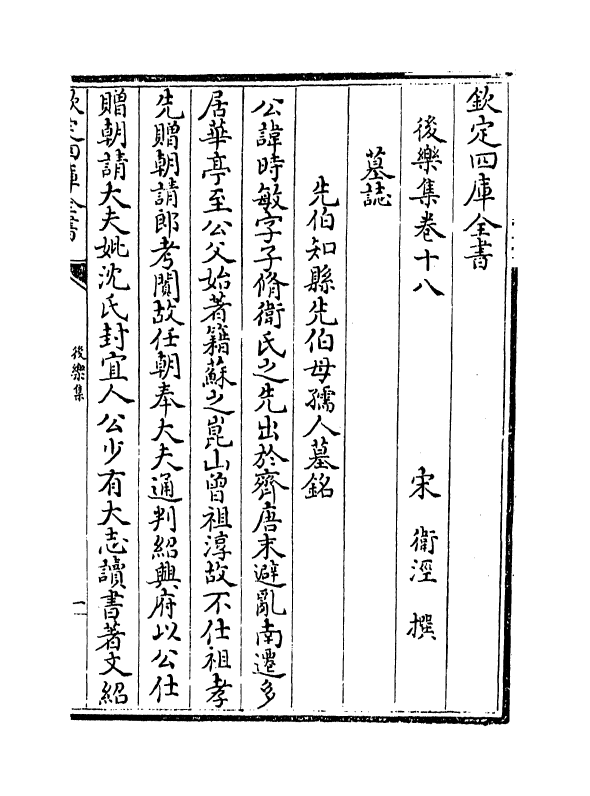 欽定四庫全書
後樂集卷十八
宋 衛涇 撰
墓誌
先伯知縣先伯母孺人墓銘
公諱時敏字子脩衛氏之先出於齊唐末避亂南遷多
居華亭至公父始著籍蘇之崑山曾祖淳故不仕祖孝
先贈朝請郎考閱故任朝奉大夫通判紹興府以公仕
贈朝請大夫妣沈氏封宜人公少有大志讀書著文紹
欽定四庫全書
後樂集
一